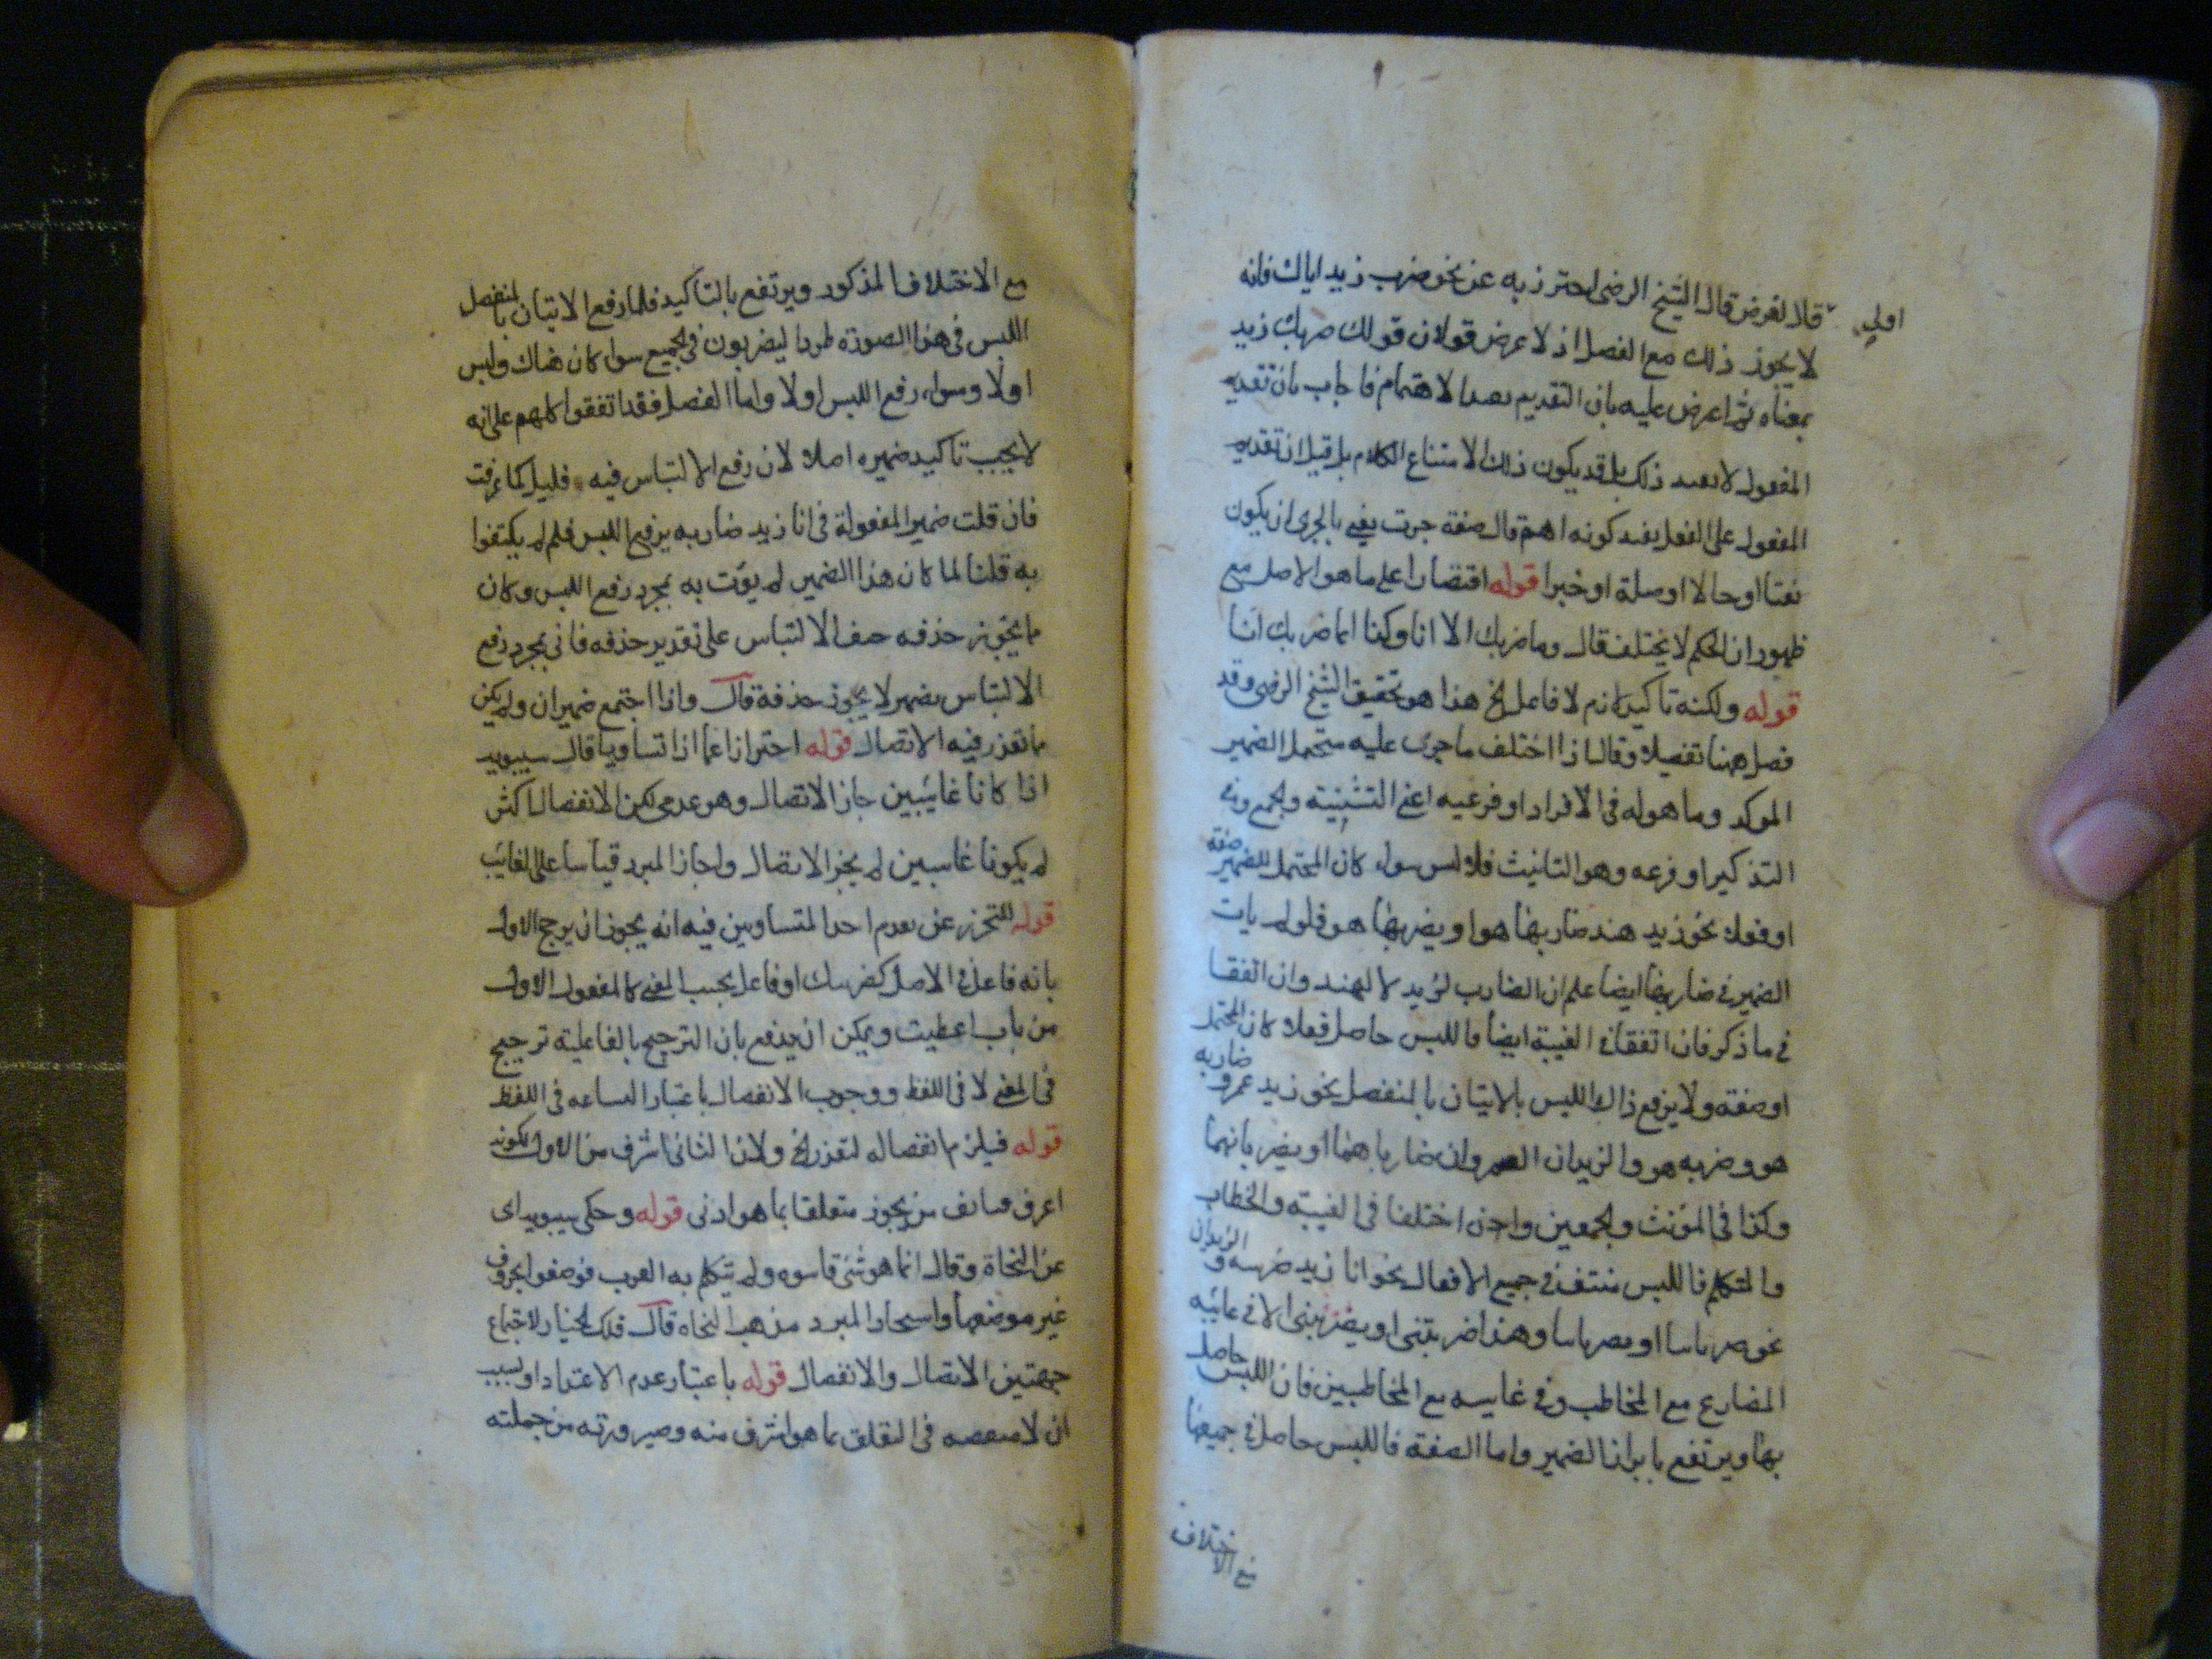 اولي
قال لغرض قال الشيخ الرضي احترز به عن نحو ضرب زيد اياك فانه
لا يجوز ذلك مع الفصل اذ لا غرض قولان قولك ضربك زيد
بمعناه ثم اعرض عليه بان التقديم الاهتمام فاجاب بان تقديم
المفعول لا ذلك بل قد يكون ذلك لامتناع الكلام بل قيل ان تقديم
المفعول على الفعل يفيد كونه اهم قال صفة جرت يعني بالجري ان يكون
نعتا او حالا او صلة او خبرا قوله اقتصارا على ما هو الاصل مع
ظهور ان الحكم لا يختلف قال وما ضربك الا انا وكذا انما ضربك انا
قوله ولكنه تاكيد لازم لا فاعل الخ هذا هو تحقيق الشيخ الرضي وقد
فصل ههنا تفصيلا وقال اذا اختلف ما جرى عليه متحمل الضمير
الموكد وما هو له في الافراد او فرعيه اعني التثنية والجمع وفي
التذكير او فرعه وهو التانيث فلا لبس سواء كان المحتمل للضمير صفة
او فعلا نحو زيد هند ضاربها هو او يضربها هو فلو لم يات
الضمير في ضاربها ايضا علم ان الضارب لزيد لا لهند وان اتفقا
في ما ذكر فان اتفقا في الغيبة ايضا فاللبس حاصل فعلا كان المحتمل
او صفة ولا يرفع ذالك اللبس بالاتيان بالمنفصل نحو زيد عمرو ضاربه
هو وضربه هو والزيدان العمروان ضارباهما او يضربانهما
وكذا في المؤنث والجمعين وان اختلفا في الغيبة والخطاب
والتكلم فاللبس منتف في جميع الافعال نحو انا زيد ضربته و الزيدان
نحو وهند اضربتني او يضربني الا في غائبه
المضارع مع المخاطب وفي مع المخاطبين فان اللبس حاصل
بها ويرتفع بابراز الضمير واما الصفة فاللبس حاصل في جميعها
مع الاختلاف
مع الاختلاف المذكور ويرتفع بالتاكيد فلما رفع الاتيان بالمنفصل
اللبس في هذا الصورة طردا ليضربون في الجميع سواء كان هناك ولبس
اولا وسواء رفع اللبس اولا واما الفصل فقد اتفقوا كلهم على انه
لا يجب تاكيد ضميره اصلا لان رفع الالتباس فيه قليل كما عرفت
فان قلت ضمير المفعولة في انا زيد ضاربه يرفع اللبس فلم لم يكتفوا
به قلنا لما كان هذا الضمير لم يؤت به بمجرد رفع اللبس وكان
ما يجوز حذفه الالتباس على تقدير حذفه فاتى بمجرد رفع
الالتباس بضمير لا يجوز حذفه قال واذا اجتمع ضميران ولم يكن
ما تعذر فيه الاتصال قوله احترازا عما اذا تساويا قال سيبويه
اذا كانا غائبين جاز الاتصال وهو عربي لكن الانفصال اكثر
لم يكونا غائبين لم يجز الاتصال واجاز المبرد قياسا على الغايب
قوله للتحرز عن تقدم احد المتساويين فيه انه يجوز ان يرجح الاول
بانه فاعل في الاصل او فاعل بحسب المعنى كالمفعول الاول
من باب اعطيت ويمكن ان يدفع بان الترجيح بالفاعلية ترجيح
في المعنى لا في اللفظ ووجوب الانفصال باعتبار الشناعة في اللفظ
قوله فيلزم انفصاله لتعذر الخ ولان الثاني اشرف من الاول لكونه
اعرف من يجوز متعلقا بما هو ادنى قوله وحكى سيبويه اى
عن النحاة وقال انما هو شئ قاسوه ولم يتكلم به العرب فوضعوا الحروف
غير موضعها المبرد مذهب النحاة قال فلك الخيار لاجتماع
جهتين الاتصال والانفصال قوله باعتبار عدم الاعتداد او بسبب
ان لا في التعلق بما هو اشرف منه وصيرورته من جملته